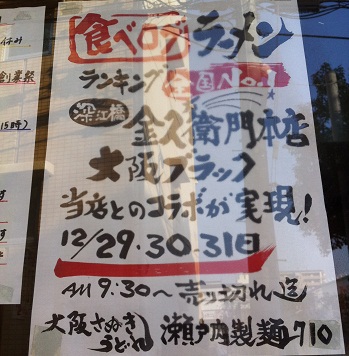 食べログ ラーメン
ランキング 全国No.1
深江橋 金久衛門本店
大阪ブラック
当店とのコラボが実現!
12/29・30・31日
AM 9:30〜売り切れ迄
大阪さぬきうどん 瀬戸内製麺710
休み
創業祭
15時)